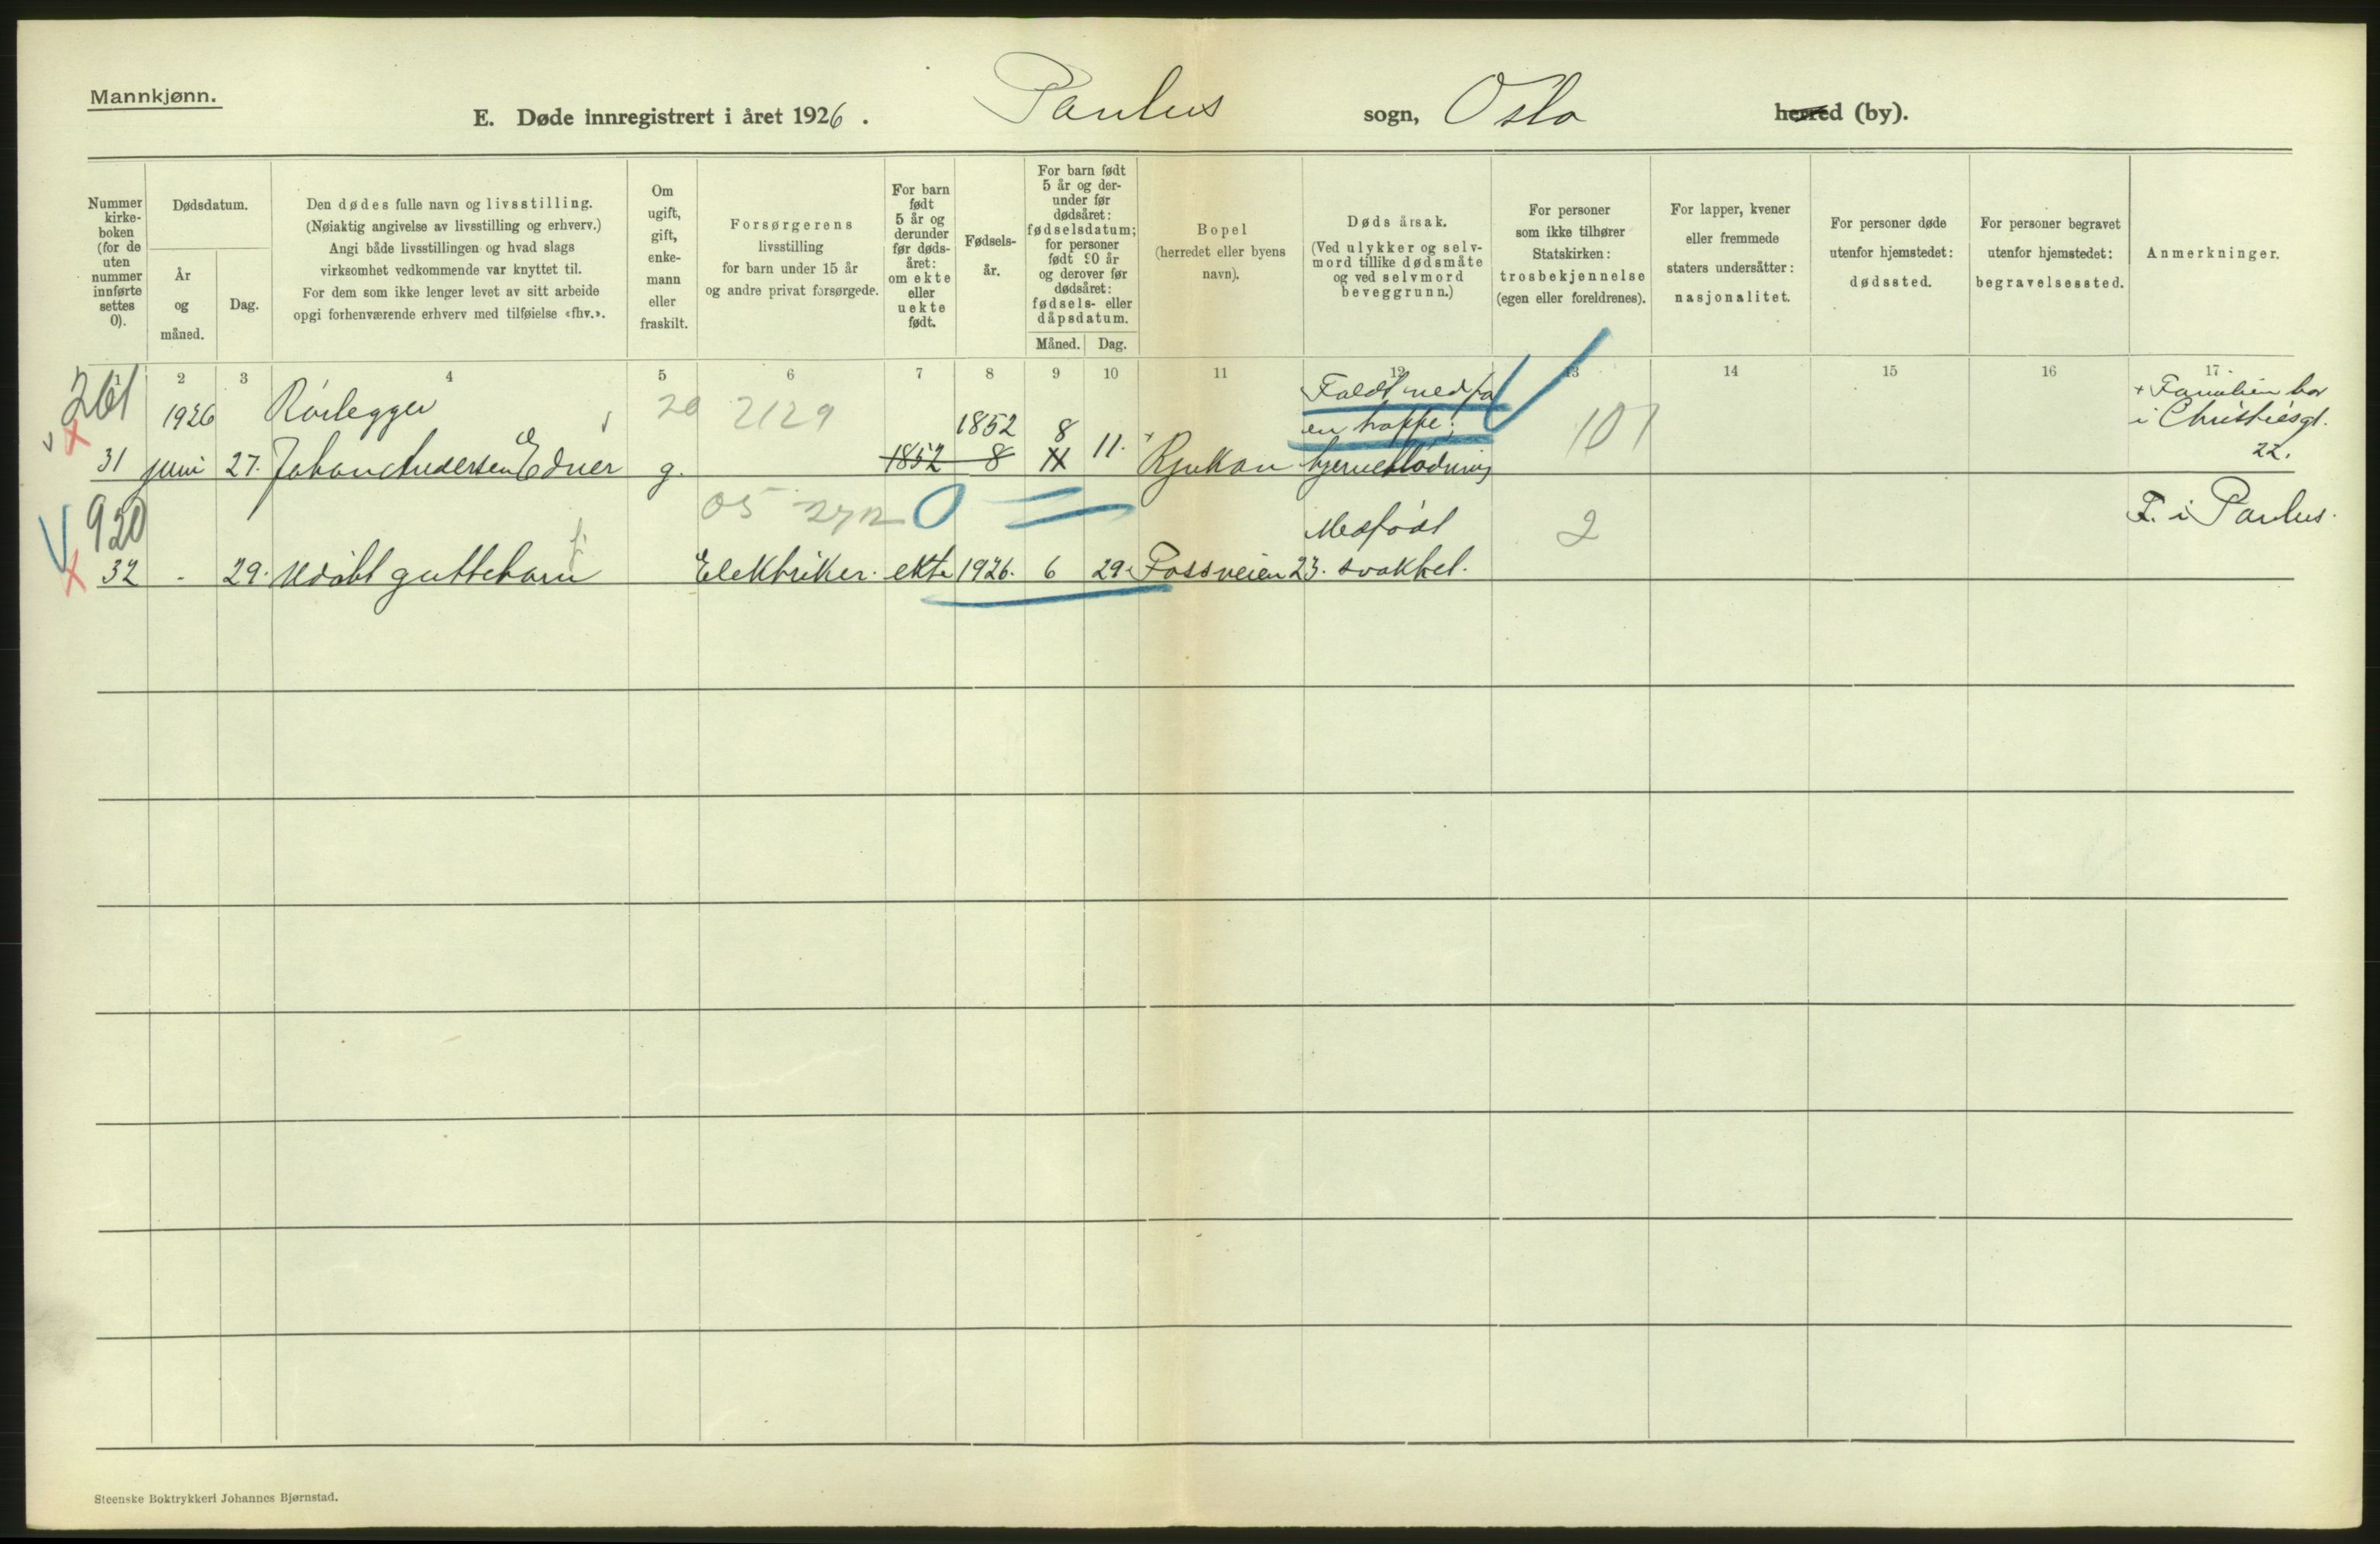 Mannkjønn.
E. Døde innregistrert i året 1926. Paulus sogn, Oslo herred (by).
Nummer kirke-boken (for de uten nummer innførte settes 0).
Dødsdatum.
År og måned.
Dag.
Den dødes fulle navn og livsstilling.
(Nøiaktig angivelse av livsstilling og erhverv.)
Angi både livsstillingen og hvad slags
virksomhet vedkommende var knyttet til.
For dem som ikke lenger levet av sitt arbeide
opgi forhenværende erhverv med tilføielse «fhv.».
Om ugift, gift, enke-mann eller fraskilt.
Forsørgerens
livsstilling
for barn under 15 år
og andre privat forsørgede.
For barn født 5 år og derunder før døds-året: om ekte eller uekte født.
Fødsels-år.
For barn født 5 år og der-under før dødsåret: fødselsdatum; for personer født 90 år og derover før dødsåret: fødsels- eller dåpsdatum.
Måned. Dag.
Bopel
(herredet eller byens navn).
Dødsårsak.
(Ved ulykker og selv-mord tillike dødsmåte og ved selvmord beveggrunn.)
For personer som ikke tilhører Statskirken: trosbekjennelse (egen eller foreldrenes).
For lapper, kvener eller fremmede staters undersåtter: nasjonalitet.
For personer døde utenfor hjemstedet: dødssted.
For personer begravet utenfor hjemstedet: begravelsessted.
Anmerkninger.
1 2 3 4 5 6 7 8 9 10 11 12 13 14 15 16 17
261 1926 Rørlegger 20 2129 1852 8 Faldt ned fra en trappe; 101 + Familien bor i Christiesgt. 22.
31 juni 27. Johan Andersen Edner g. 1852 8 11 11. + Rjukan hjerneblødning
920 05 0 Medfødt 2 F. i Paulus.
32 - 29. Udøbt guttebarn Elektriker. ekte 1926. 6 29. Fossveien 23. svakhet.
Steenske Boktrykkeri Johannes Bjørnstad.